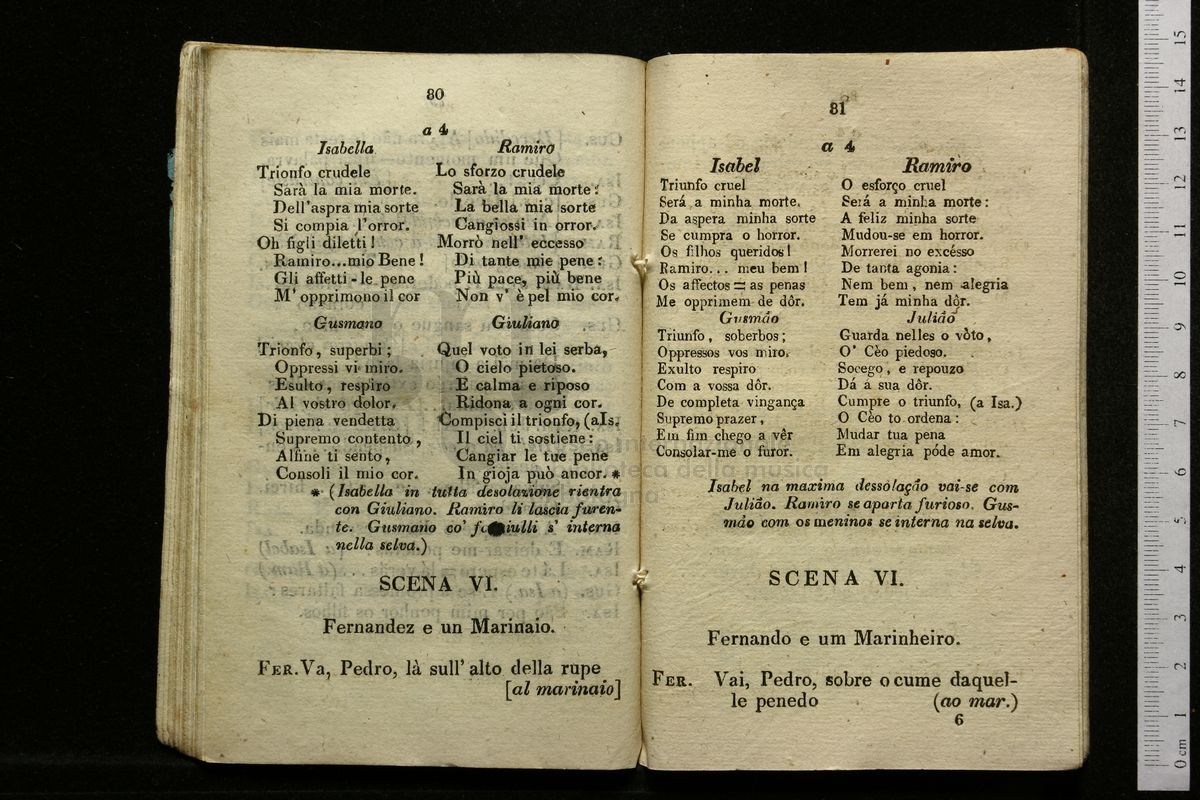 80
a 4
Isabella
Trionfo crudele
Sarà la mia morte.
Dell'aspra mia sorte
Si compia l'orror.
Oh figli diletti!
Ramiro...mio Bene!
Gli affetti - le pene
M'opprimono il cor
Ramiro
Lo sforzo crudele
Sarà la mia morte:
La bella mia sorte
Cangiossi in orror.
Morrò nell' eccesso
Di tante mie pene:
Più pace, più bene
Non v' è pel mio cor.
Gusmano
Trionfo, superbi;
Oppressi vi miro.
Esulto, respiro
Al vostro dolor.
Di piena vendetta
Supremo contento,
Alfine ti sento,
Consoli il mio cor.
Giuliano
Quel voto in lei serba,
O cielo pietoso.
E calma e riposo
Ridona a ogni cor.
Compisci il trionfo, (aIs.
Il ciel ti sostiene:
Cangiar le tue pene
In gioja può ancor. *
* (Isabella in tutta desolazione rientra
con Giuliano. Ramiro li lascia furen-
te. Gusmano co' iulli s' interna
nella selva.)
SCENA VI.
Fernandez e un Marinaio.
FER. Va, Pedro, là sull' alto della rupe
[al marinaio]
81
a 4
Isabel
Triunfo cruel
Será a minha morte.
Da aspera minha sorte
Se cumpra o horror.
Os filhos queridos!
Ramiro... meu bem!
Os affectos = as penas
Me opprimem de dôr.
Ramiro
O esforço cruel
Será a minha morte:
A feliz minha sorte
Mudou-se em horror.
Morrerei no excésso
De tanta agonia:
Nem bem, nem alegria
Tem já minha dôr.
Gusmão
Triunfo, soberbos;
Oppressos vos miro.
Exulto respiro
Com a vossa dôr.
De completa vingança
Supremo prazer,
Em fim chego a vêr
Consolar-me o furor.
Julião
Guarda nelles o vòto,
O' Cèo piedoso.
Socego, e repouzo
Dá á sua dôr.
Cumpre o triunfo, (a Isa.)
O Cèo to ordena:
Mudar tua pena
Em alegria póde amor.
Isabel na maxima dessolação vai-se com
Julião. Ramiro se aparta furioso. Gus-
mão com os meninos se interna na selva.
SCENA VI.
Fernando e um Marinheiro.
FER. Vai, Pedro, sobre o cume daquel-
le penedo (ao mar.)
6
15
14
13
12
11
10
9
8
7
6
5
4
3
2
1
0 cm